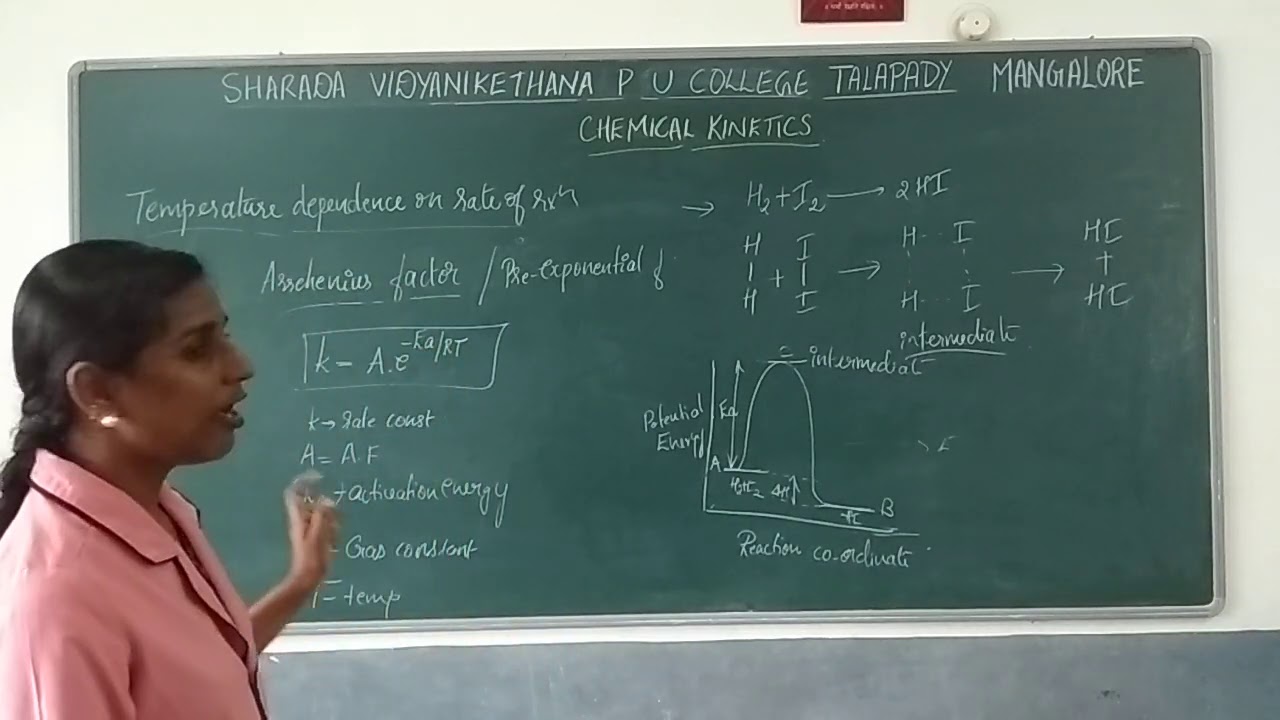 SHARADA VIDYANIKETHANA P U COLLEGE TALAPADY MANGALORE
CHEMICAL KINETICS
Temperature dependence on rate of rxn
Arrhenius factor / Pre-exponential f
k = A.e^-Ea/RT
k → rate const
A = A.F
→ activation energy
- Gas constant
T - temp
→ H2 + I2 → 2HI
H I H -- I HI
| + | → → +
H I H -- I HI
intermediate
C intermediate
Potential
Energy
Ea
A
H2+I2 ΔH
HI
B
Reaction co-ordinate